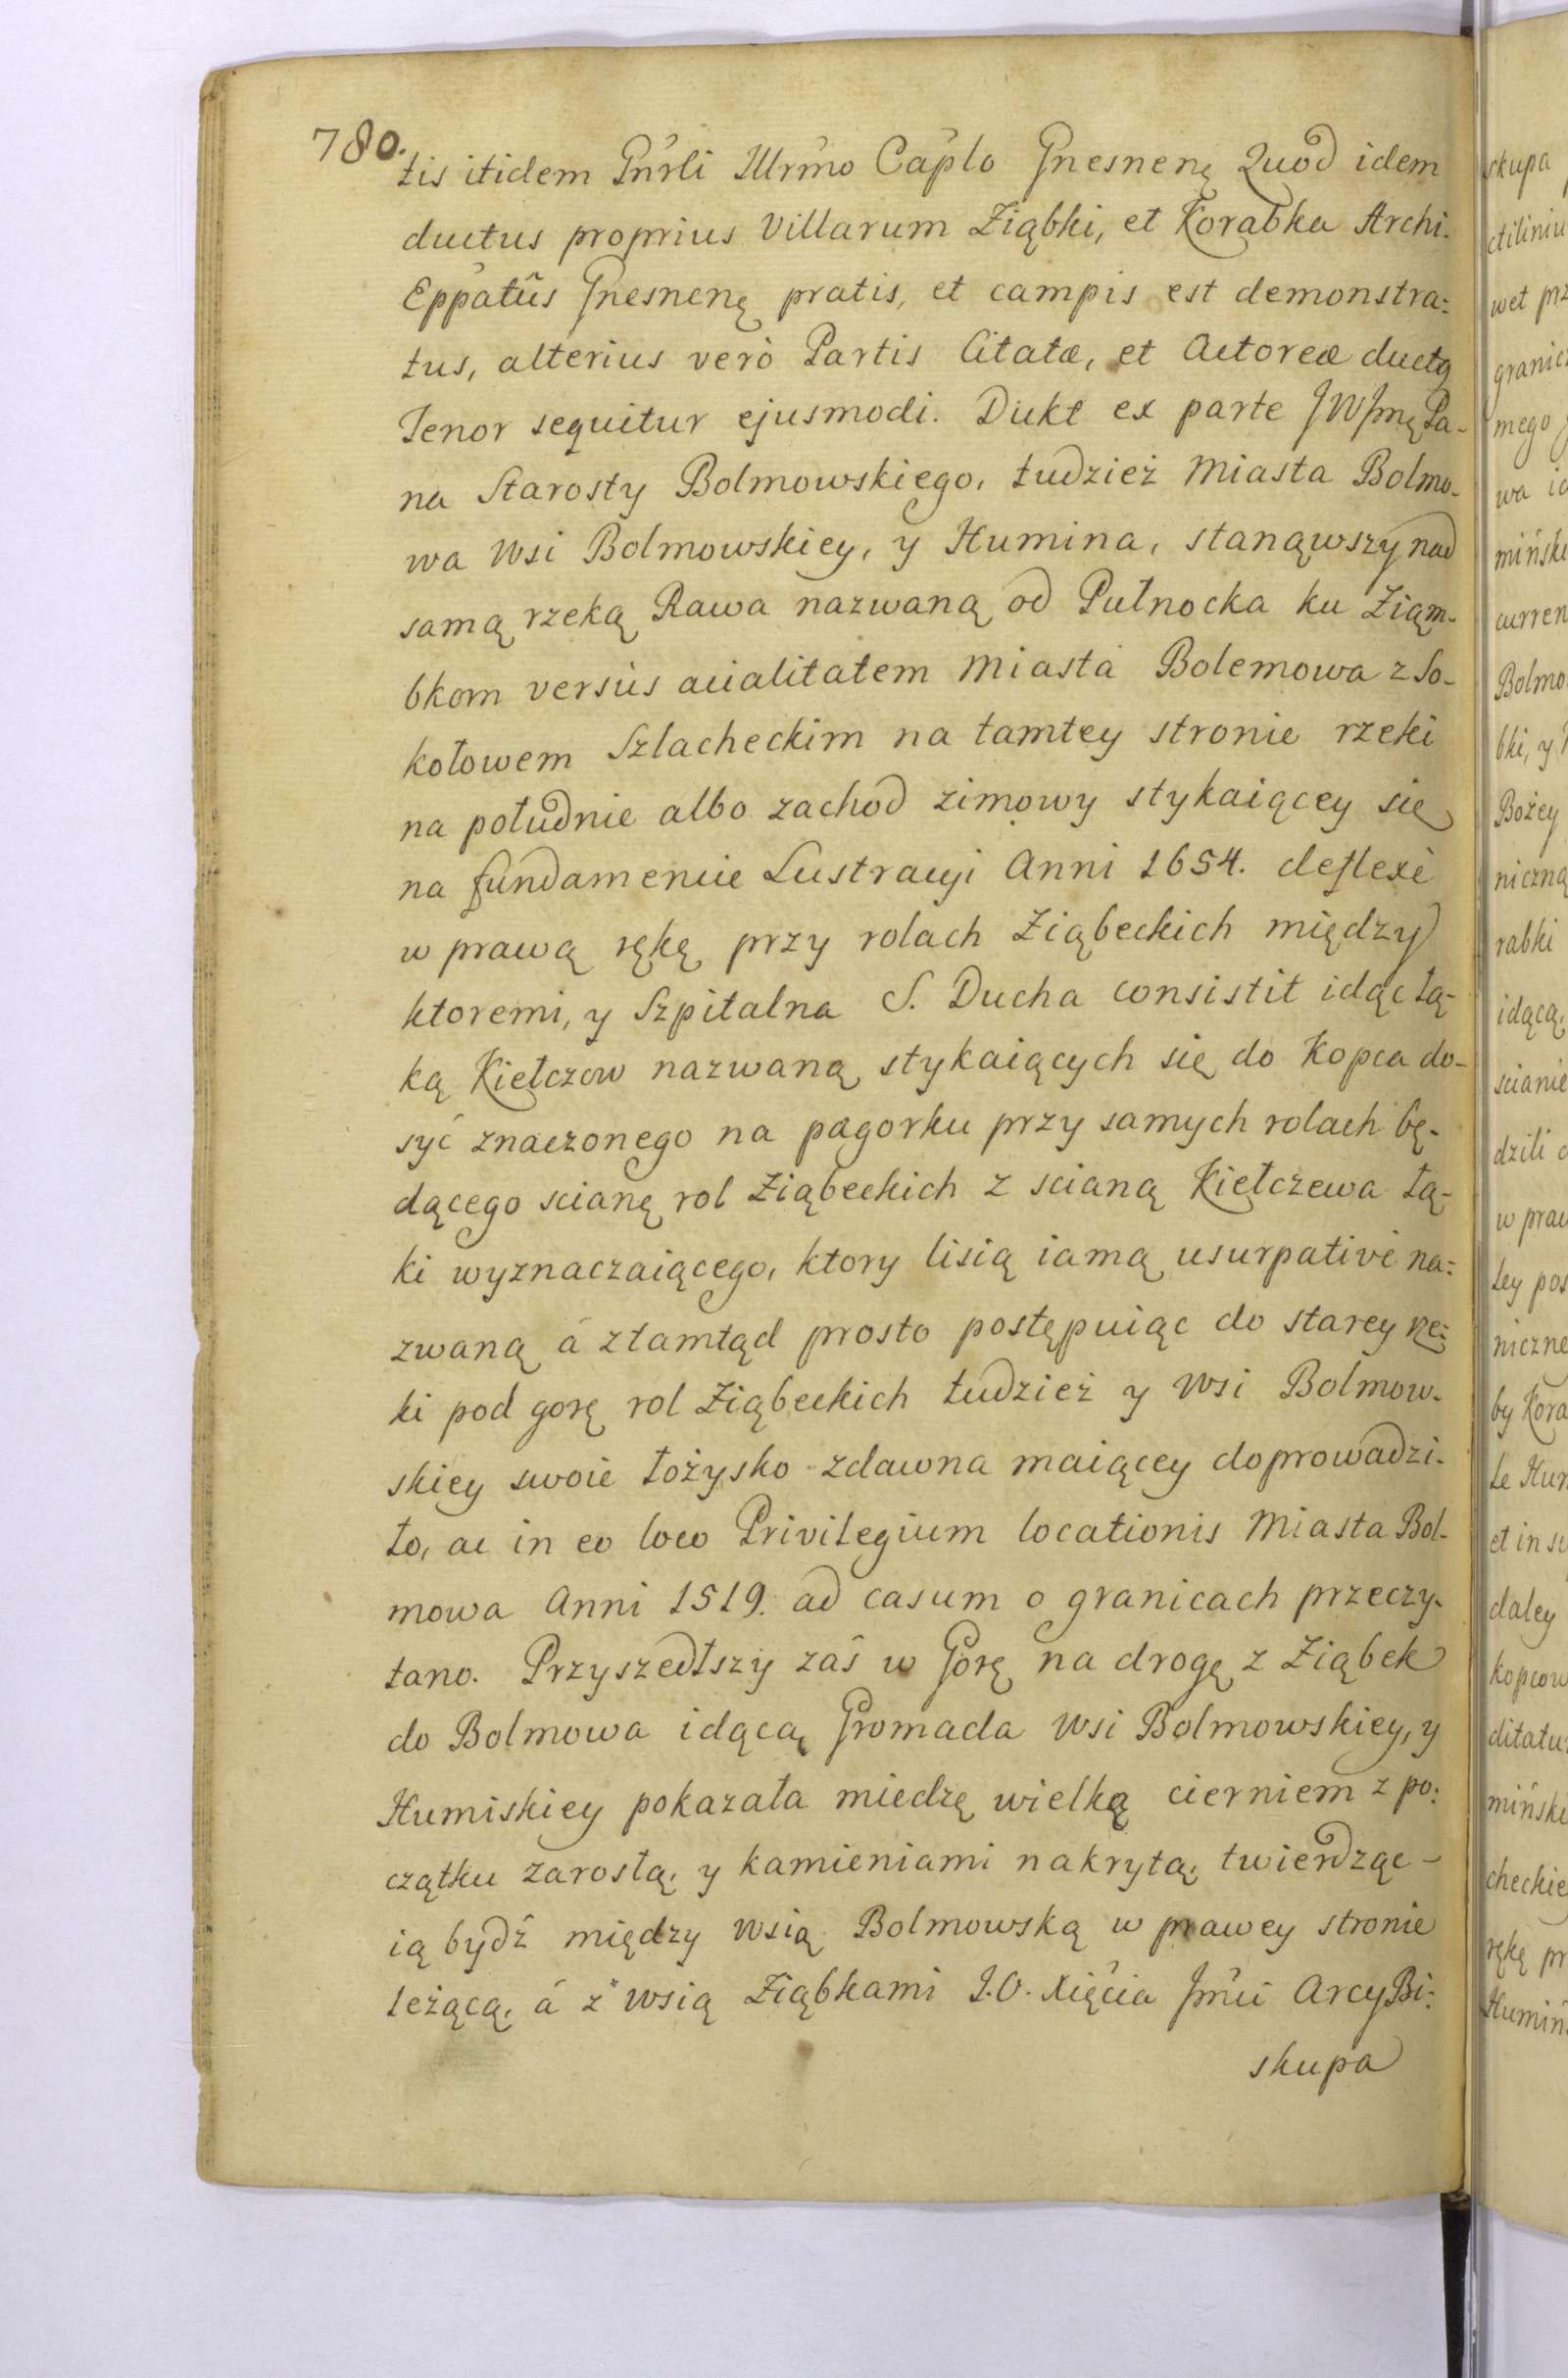 780.
tis itidem Pńrli Illrḿo Cáplo Gnesnenę Quod idem
ductus proprius Villarum Ziąbki, et Korabka Archi-
Eppatûs Gnesnenę pratis, et campis est demonstra:
tus, alterius verò Partis Citatæ, et Actoreæ ductq
Tenor sequitur ejusmodi. Dukt ex parte JWJmę Pa-
na Starosty Bolmowskiego, tudzież Miasta Bolmo-
wa Wsi Bolmowskiey, y Humina, stanąwszy nad
samą rzeką Rawa nazwaną od Pułnocka ku Ziąm-
bkom versùs acialitatem Miasta Bolemowa z So-
kołowem Szlacheckim na tamtey stronie rzeki
na południe albo zachod zimowy stykaiącey się
na fundamencie Lustracyi Anni 1654. deflexè
w prawą rękę przy rolach Ziąbeckich między
ktoremi, y Szpitalna S. Ducha consistit idąc łą-
ką Kiełczow nazwaną stykaiących się do Kopca do-
syć znaczonego na pagorku przy samych rolach bę-
dącego scianę rol Ziąbeckich z scianą Kiełczewa łą-
ki wyznaczaiącego, ktory lisią iamą usurpativè na:
zwaną á ztamtąd prosto postępuiąc do starey rze:
ki pod gorę rol Ziąbeckich tudzież y Wsi Bolmow-
skiey swoie łożysko zdawna maiącey doprowadzi-
ło, ac in eo loco Privilegium locationis Miasta Bol-
mowa Anni 1519. ad casum o granicach przeczy-
tano. Przyszedłszy zaś w Gorę na drogę z Ziąbek
do Bolmowa idącą Gromada Wsi Bolmowskiey, y
Humiskiey pokazała miedzę wielką cierniem z po:
czątku zarosłą, y kamieniami nakrytą, twierdząc -
ią bydź między Wsią Bolmowską w prawey stronie
leżącą, á z Wsią Ziąbkami J.O. Xięcia Jmći ArcyBi:
skupa
skupa
wet prz
granicz
mego
wa ią
mińsk
curren
Bolmo
bki, y
Bożey
niczną
rabki
idącą,
scianie
dzili
w praw
ley pos
niczne
by Kora
le Hum
et in su
daley
kopcow
ditatu
mińskie
checkie
rękę pr
Humiń